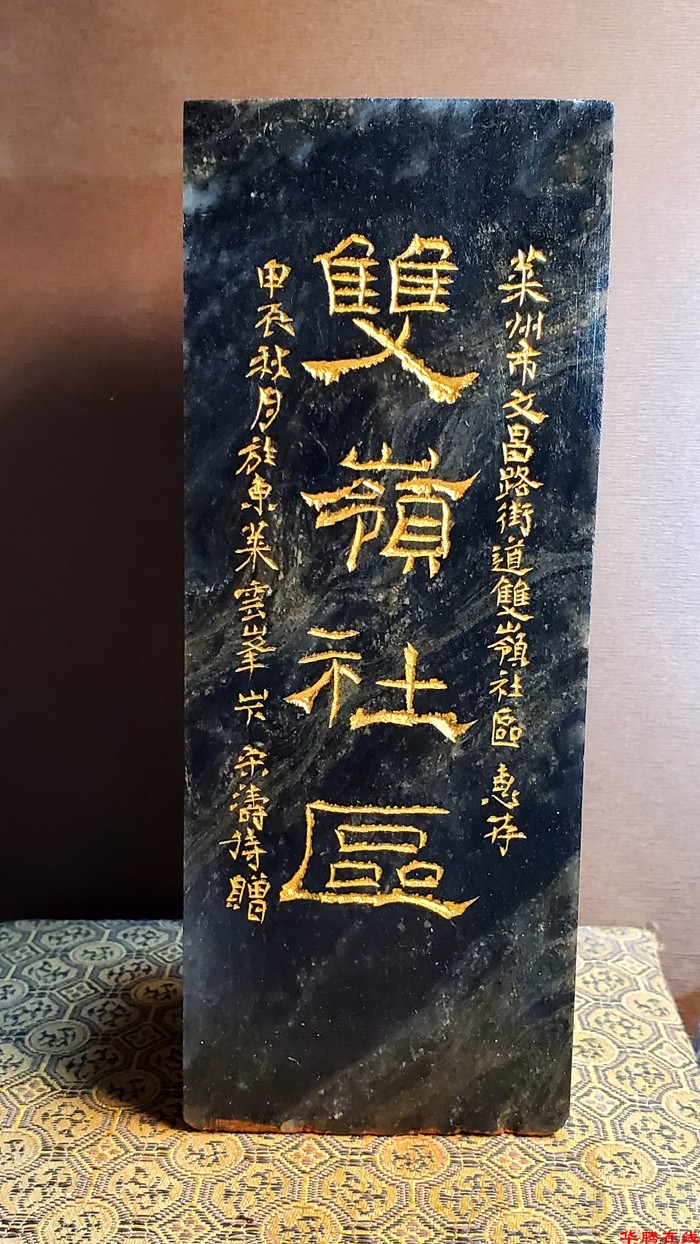 萊州市文昌路街道雙嶺社區 惠存
雙嶺社區
甲辰秋月於東萊雲峯山下 宋濤持贈
华腾在线